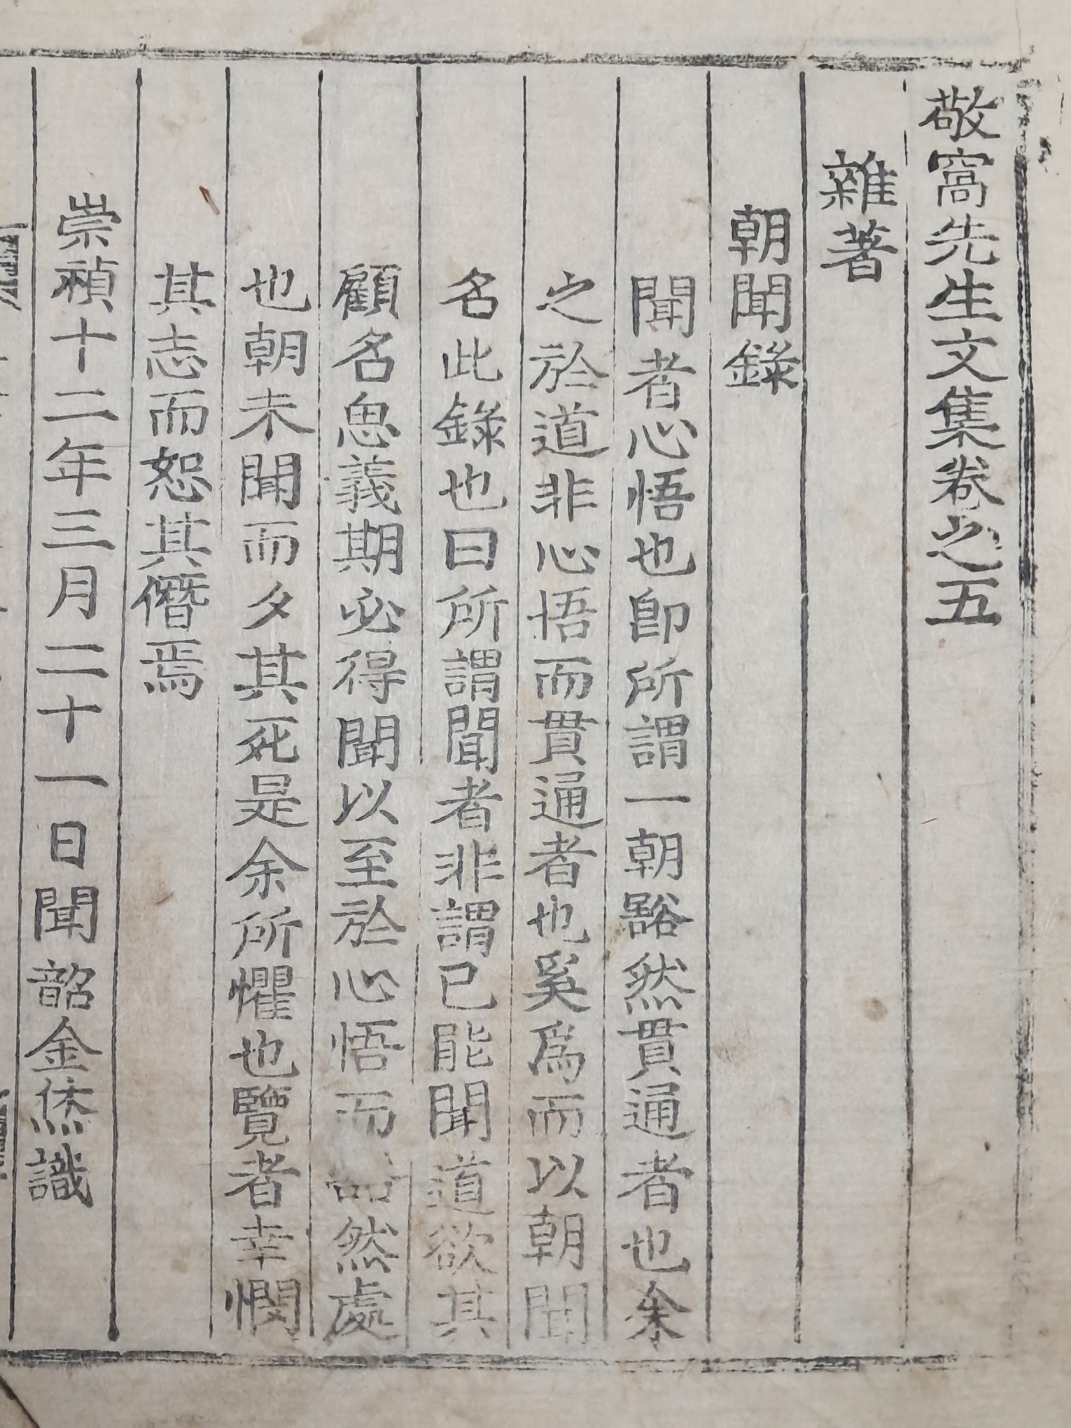 敬窩先生文集卷之五
雜著
朝聞錄
聞者心悟也卽所謂一朝豁然貫通者也余
之於道非心悟而貫通者也奚爲而以朝聞
名此錄也曰所謂聞者非謂已能聞道欲其
顧名思義期必得聞以至於心悟而 然處
也朝未聞而夕其死是余所懼也覽者幸憫
其志而恕其僭焉
崇禎十二年三月二十一日聞韶金烋識